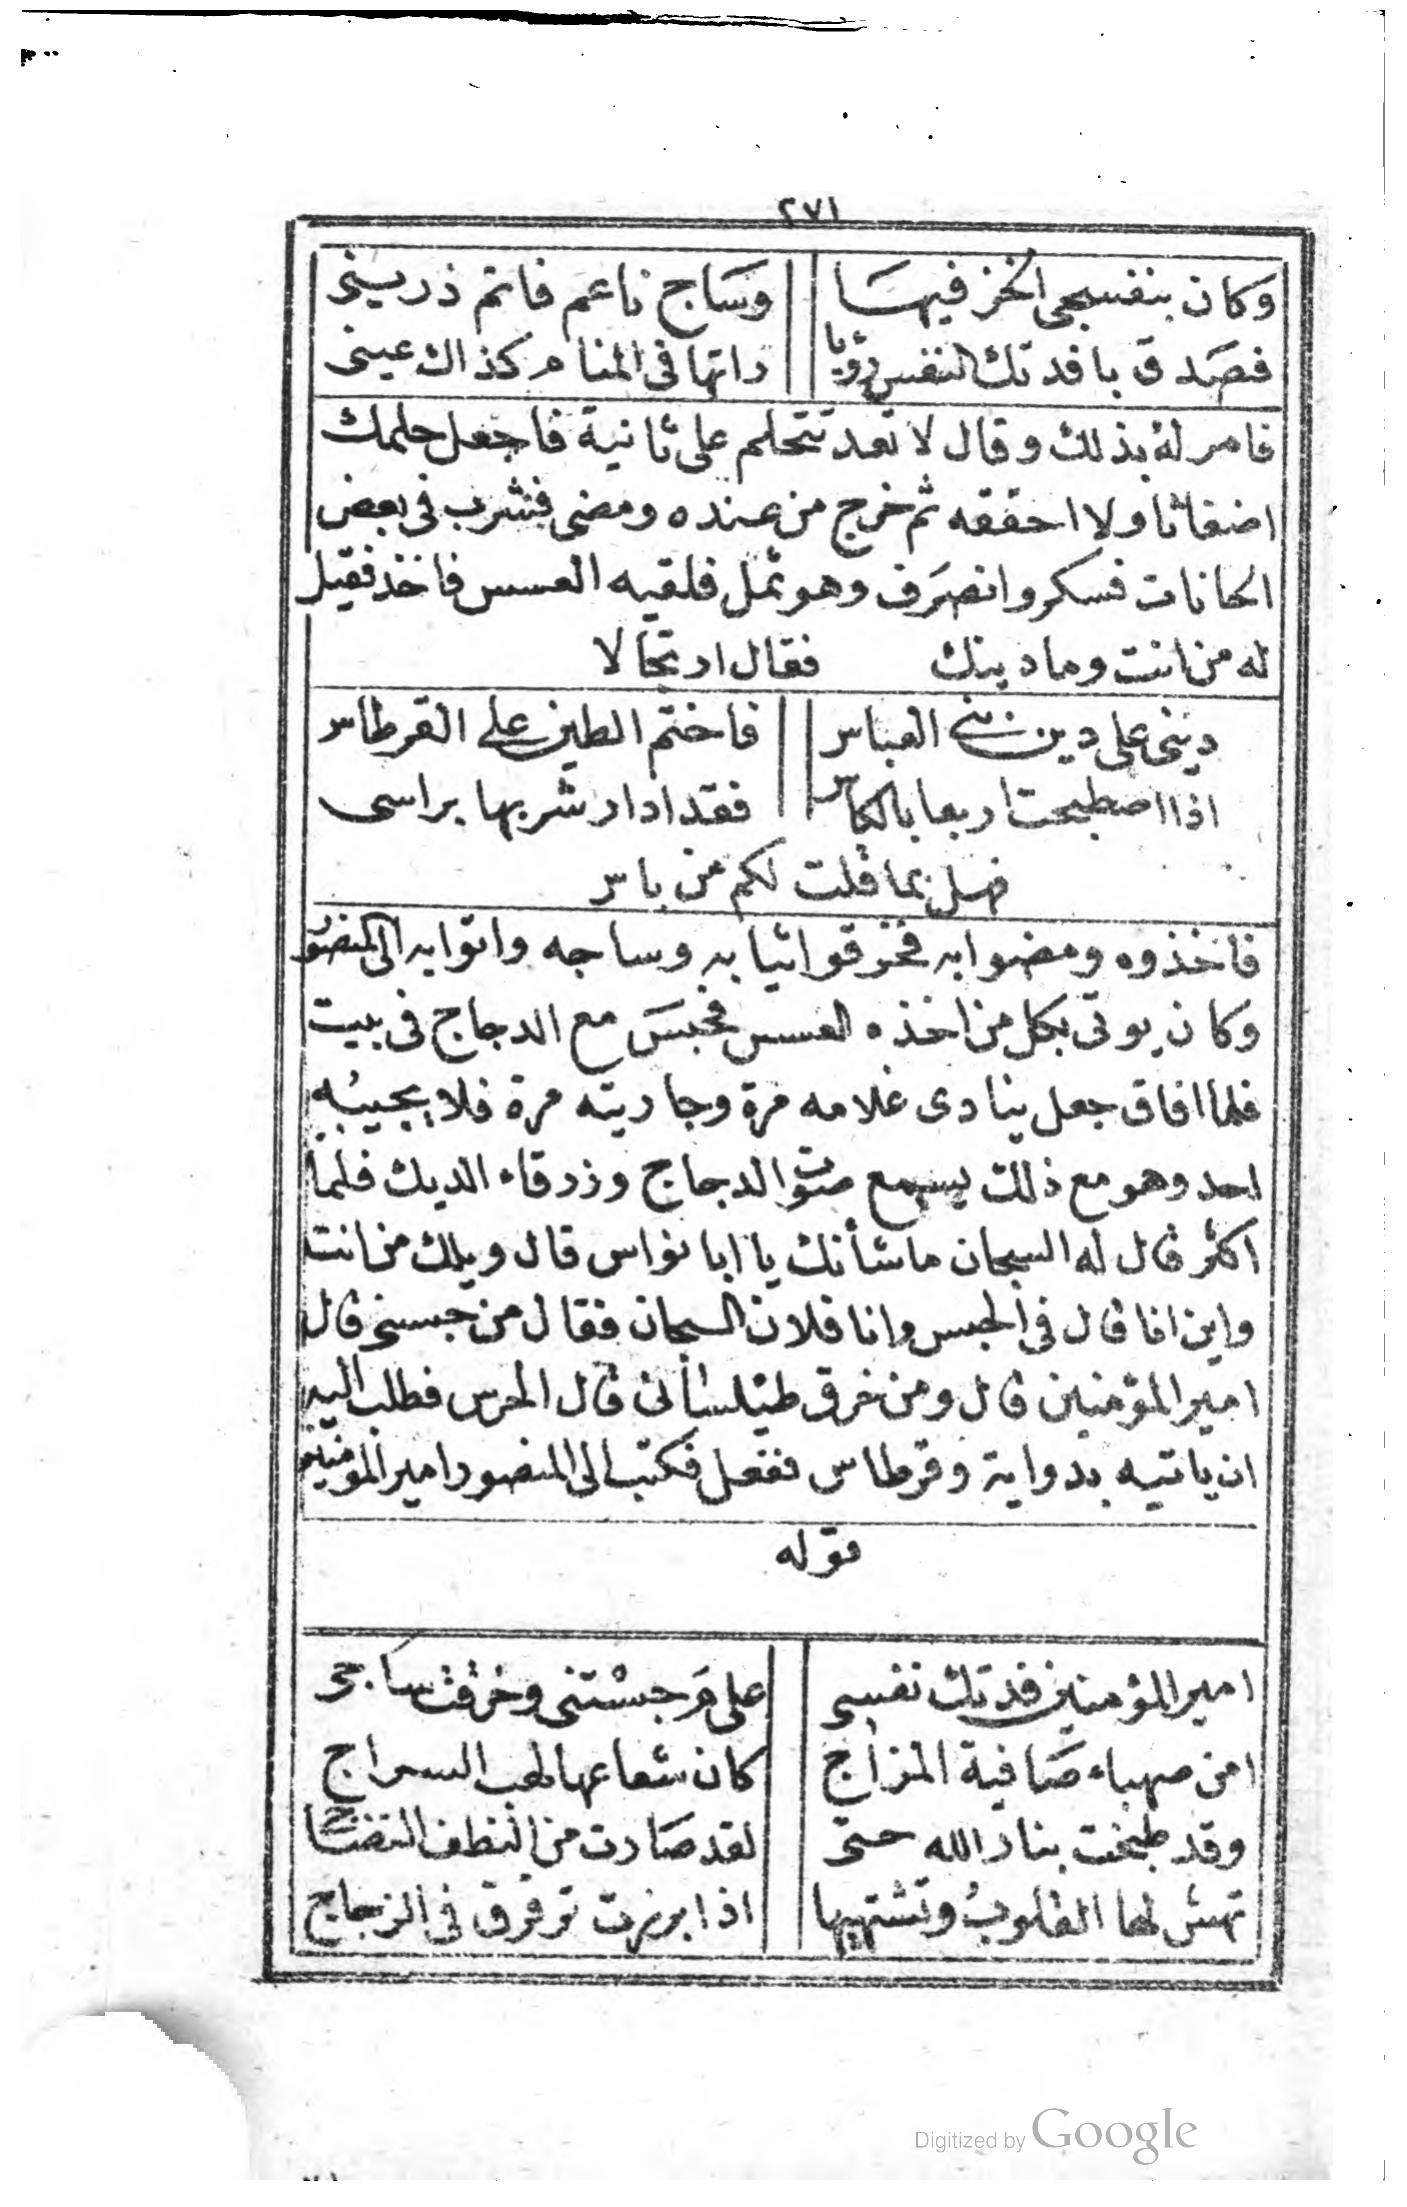 ٢٧١
وكان بنفسجى الخز فيها وساج ناعم فاتم ذرينى
فصدق يا فدتك النفس رؤيا راتها فى المنام كذاك عينى
فامر له بذلك وقال لا تعد تتحلم على ثانية فاجعل حلمك
اضغاثا ولا احققه ثم خرج من عنده ومضى فشرب فى بعض
الحانات فسكر وانصرف وهو ثمل فلقيه العسس فاخذ فقيل
له من انت وما دينك فقال ارتجالا
دينى على دين بنى العباس فاختم الطين على القرطاس
اذا اصطبحت اربعا بالكاس فقد ادار شربها براسى
فهل بما قلت لكم من باس
فاخذوه ومضوا به فخرقوا ثيابه وساجه واتوا به الى المنصور
وكان يوتى بكل من اخذه العسس فحبس مع الدجاج فى بيت
فلما افاق جعل ينادى غلامه مرة وجاريته مرة فلا يجيبه
احد وهو مع ذلك يسمع صوت الدجاج وزرقاء الديك فلما
اكثر قال له السجان ما شأنك يا ابا نواس قال ويلك من انت
واين انا قال فى الحبس وانا فلان السجان فقال من حبسنى قال
امير المؤمنين قال ومن خرق طيلسانى قال الحرس فطلب اليه
ان ياتيه بدواية وقرطاس ففعل فكتب الى المنصور امير المومنين
قوله
امير المؤمنين فدتك نفسى على م حبستنى وخرقت ساجى
امن صهباء صافية المزاج كان شعاعها لهب السراج
وقد طبخت بنار الله حتى لقد صارت من النطف النضاج
تهش لها القلوب وتشتهيها اذا برزت ترقرق فى الزجاج
Digitized by Google